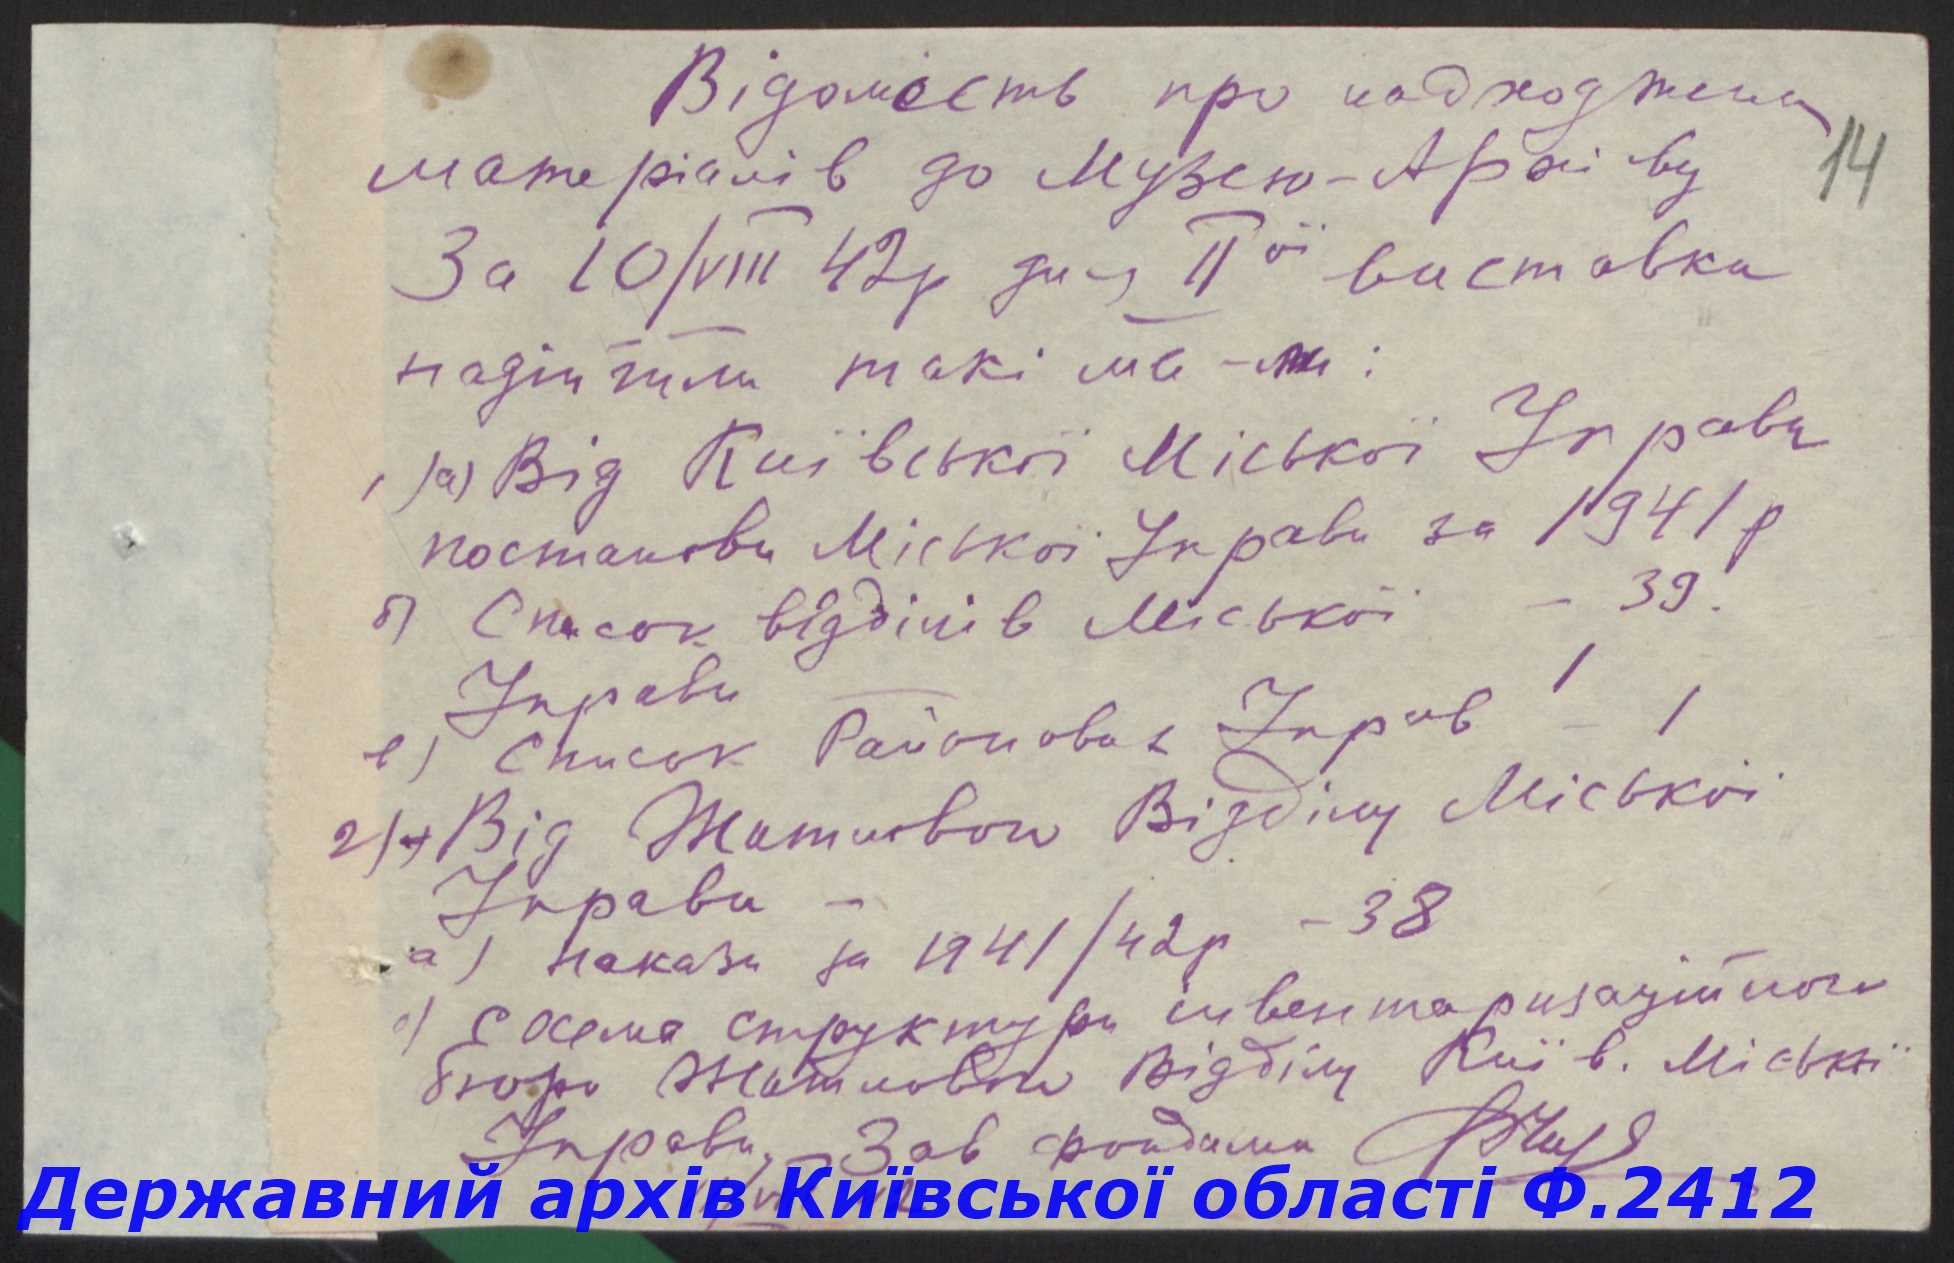 Відомість про надходжения
14
матеріалів до Музею-Архіву
За 10/VIII 42р для ІІої виставки
надійшли такі ма-ли:
1)а) Від Київської Міської Управи
постанови Міської Управи за 1941р
- 39.
б) Список відділів Міської
Управи 1
в) Список Районових Управ - 1
2) Від Житлового Відділу Міської
Управи -
а) накази за 1941/42р - 38
схема структури інвентаризаційного
бюро Житлового Відділу Київ. Міської
Управи. Зав фондами
Державний архів Київської області Ф.2412